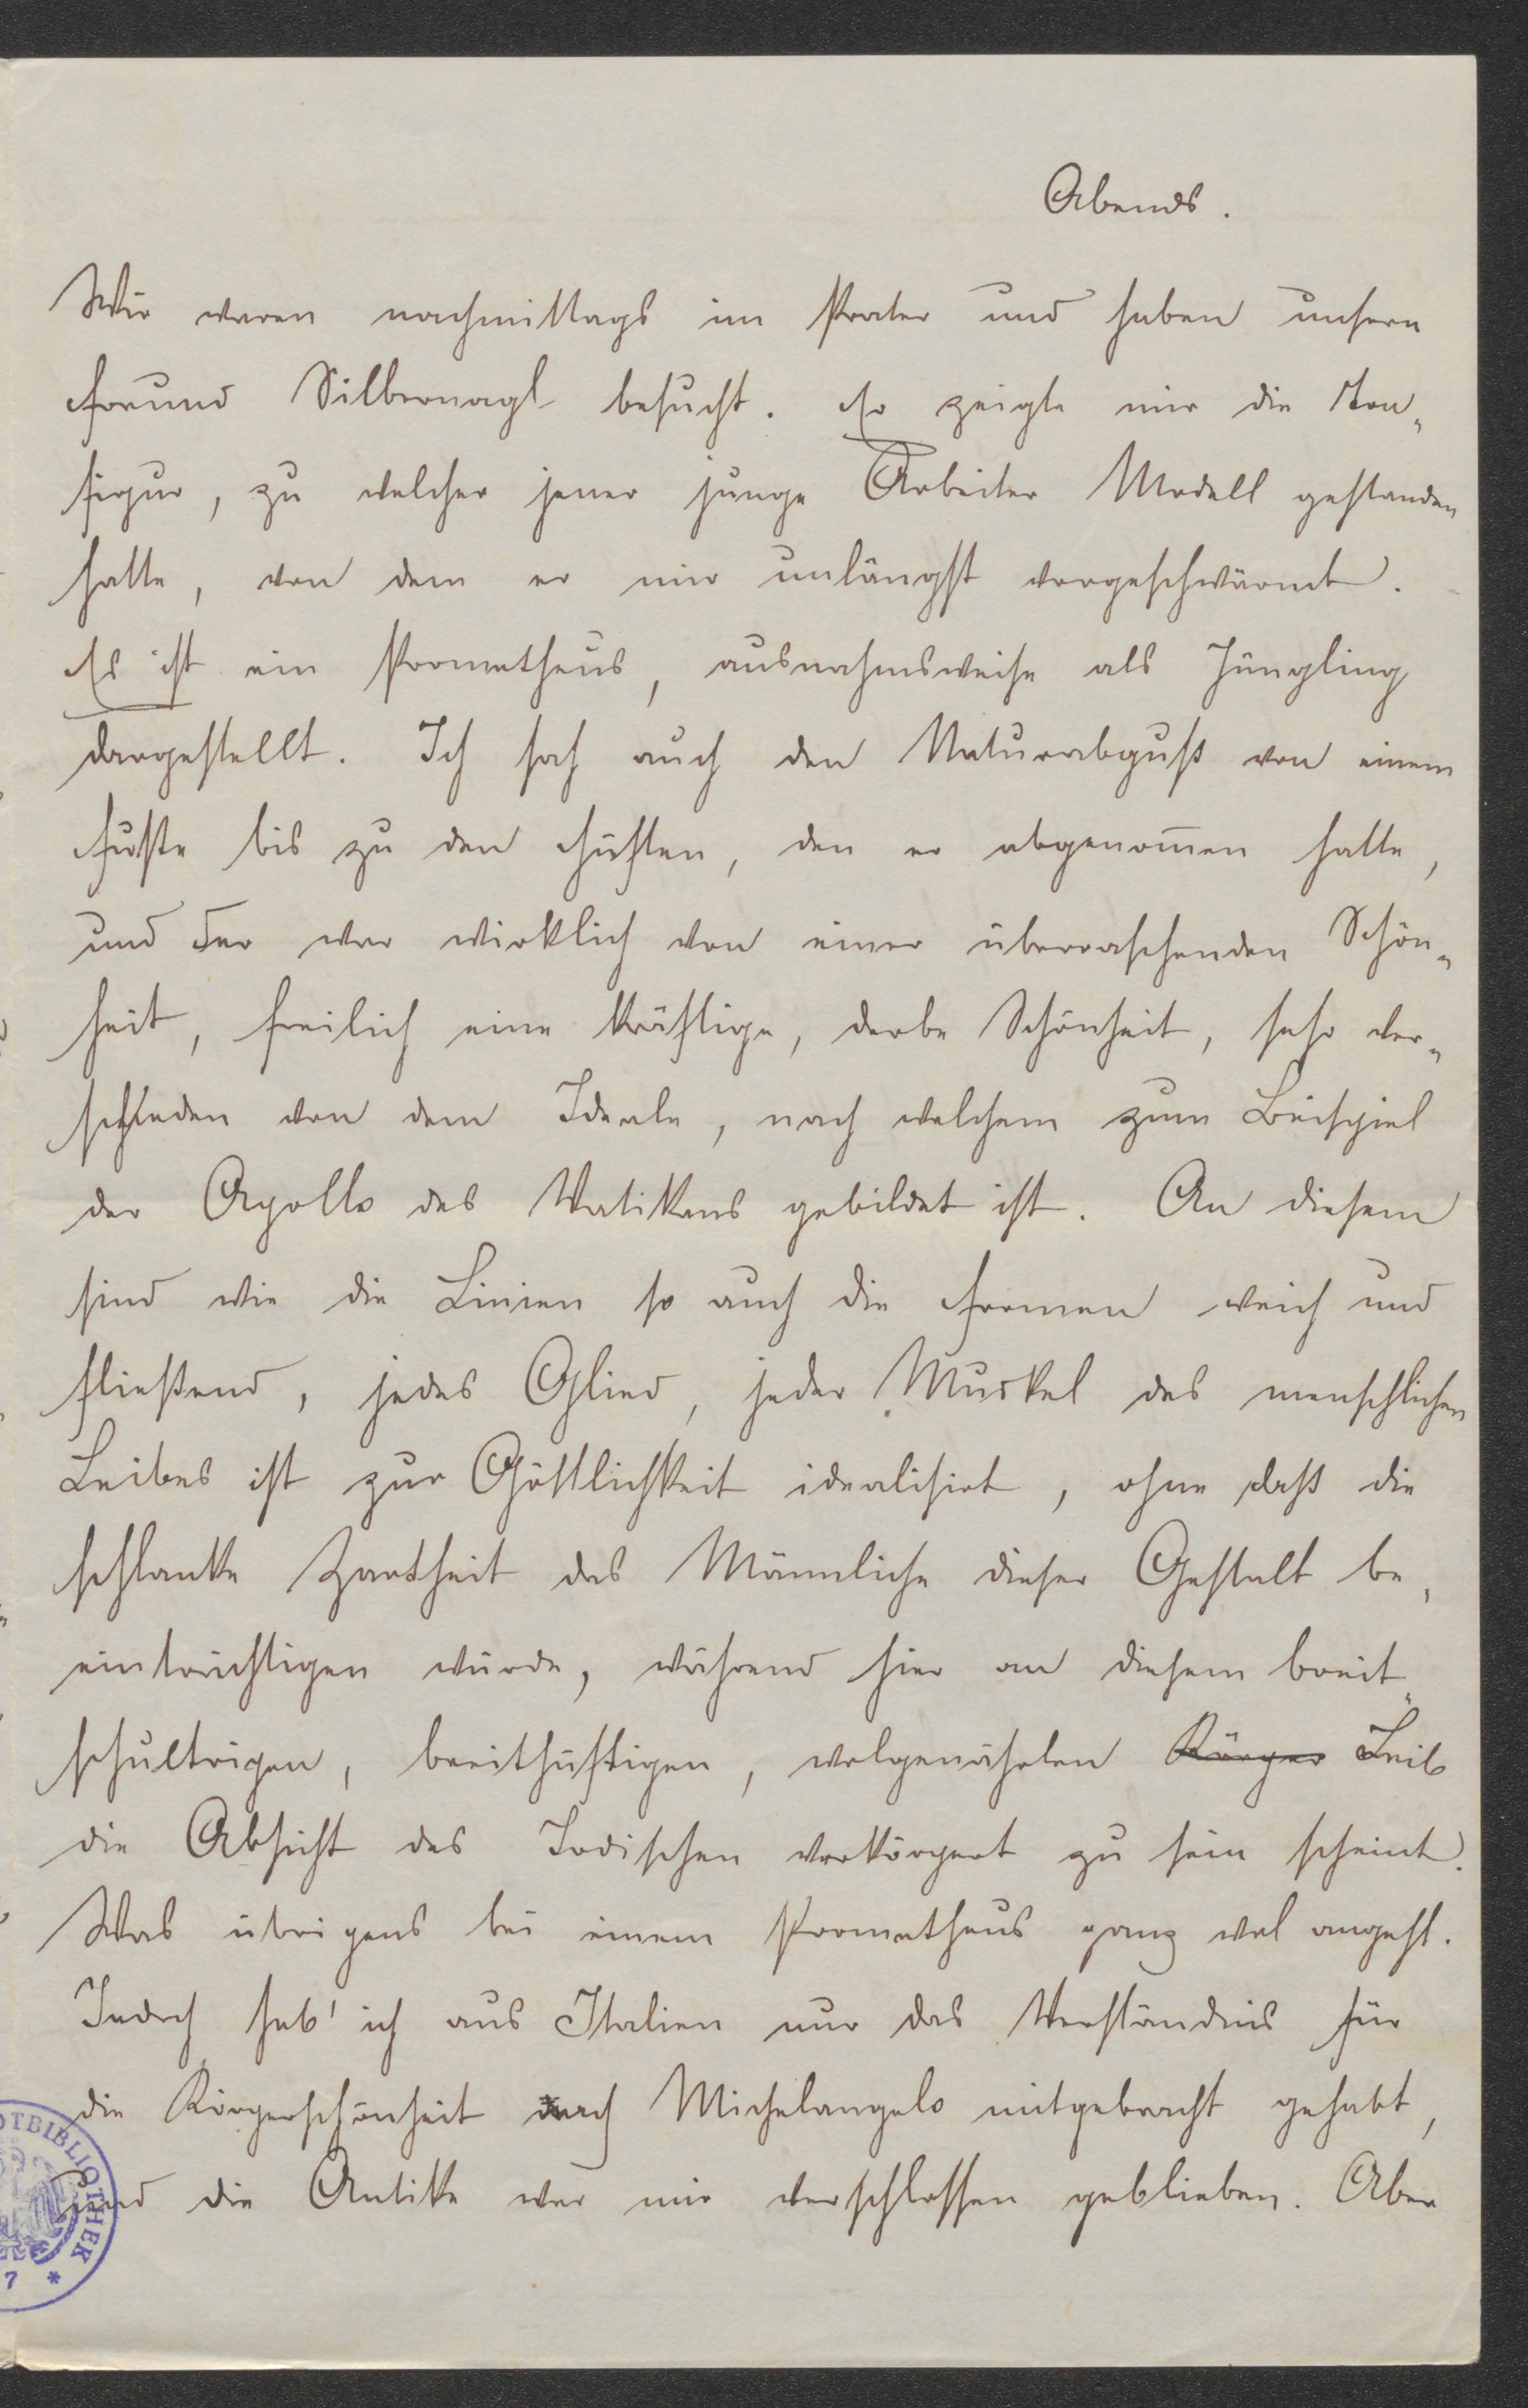 Abends.
Wir waren nachmittags im Prater und haben unsern
Freund Silbernagl besucht. Er zeigte mir die Ton„
figur, zu welcher jener junge Arbeiter Modell gestanden
hatte, von dem er mir unlängst vorgeschwärmt.
Es ist ein Prometheus, ausnahmsweise als Jüngling
dargestellt. Ich sah auch den Naturabguß von einem
Fuße bis zu den Hüften, den er abgenom̅en hatte,
und der war wirklich von einer überraschenden Schön„
heit, freilich eine kräftige, derbe Schönheit, sehr ver„
schieden von dem Ideale, nach welchem zum Beispiel
der Apollo des Vatikans gebildet ist. An diesem
sind wie die Linien so auch die Formen weich und
fließend, jedes Glied, jeder Muskel des menschlichen
Leibes ist zur Göttlichkeit idealisirt, ohne daß die
schlanke Zartheit das Männliche dieser Gestalt be„
einträchtigen würde, während hier an diesem breit„
schultrigen, breithüftigen, wolgenährten Körper Leib
die Absicht des Irdischen verkörpert zu sein scheint.
Was übrigens bei einem Prometheus ganz wol angeht.
Jedoch hab' ich aus Italien nur das Verständnis für
die Körperschönheit nach Michelangelo mitgebracht gehabt,
und die Antike war mir verschlossen geblieben. Aber
OTBIBLIOTHEK
7 *